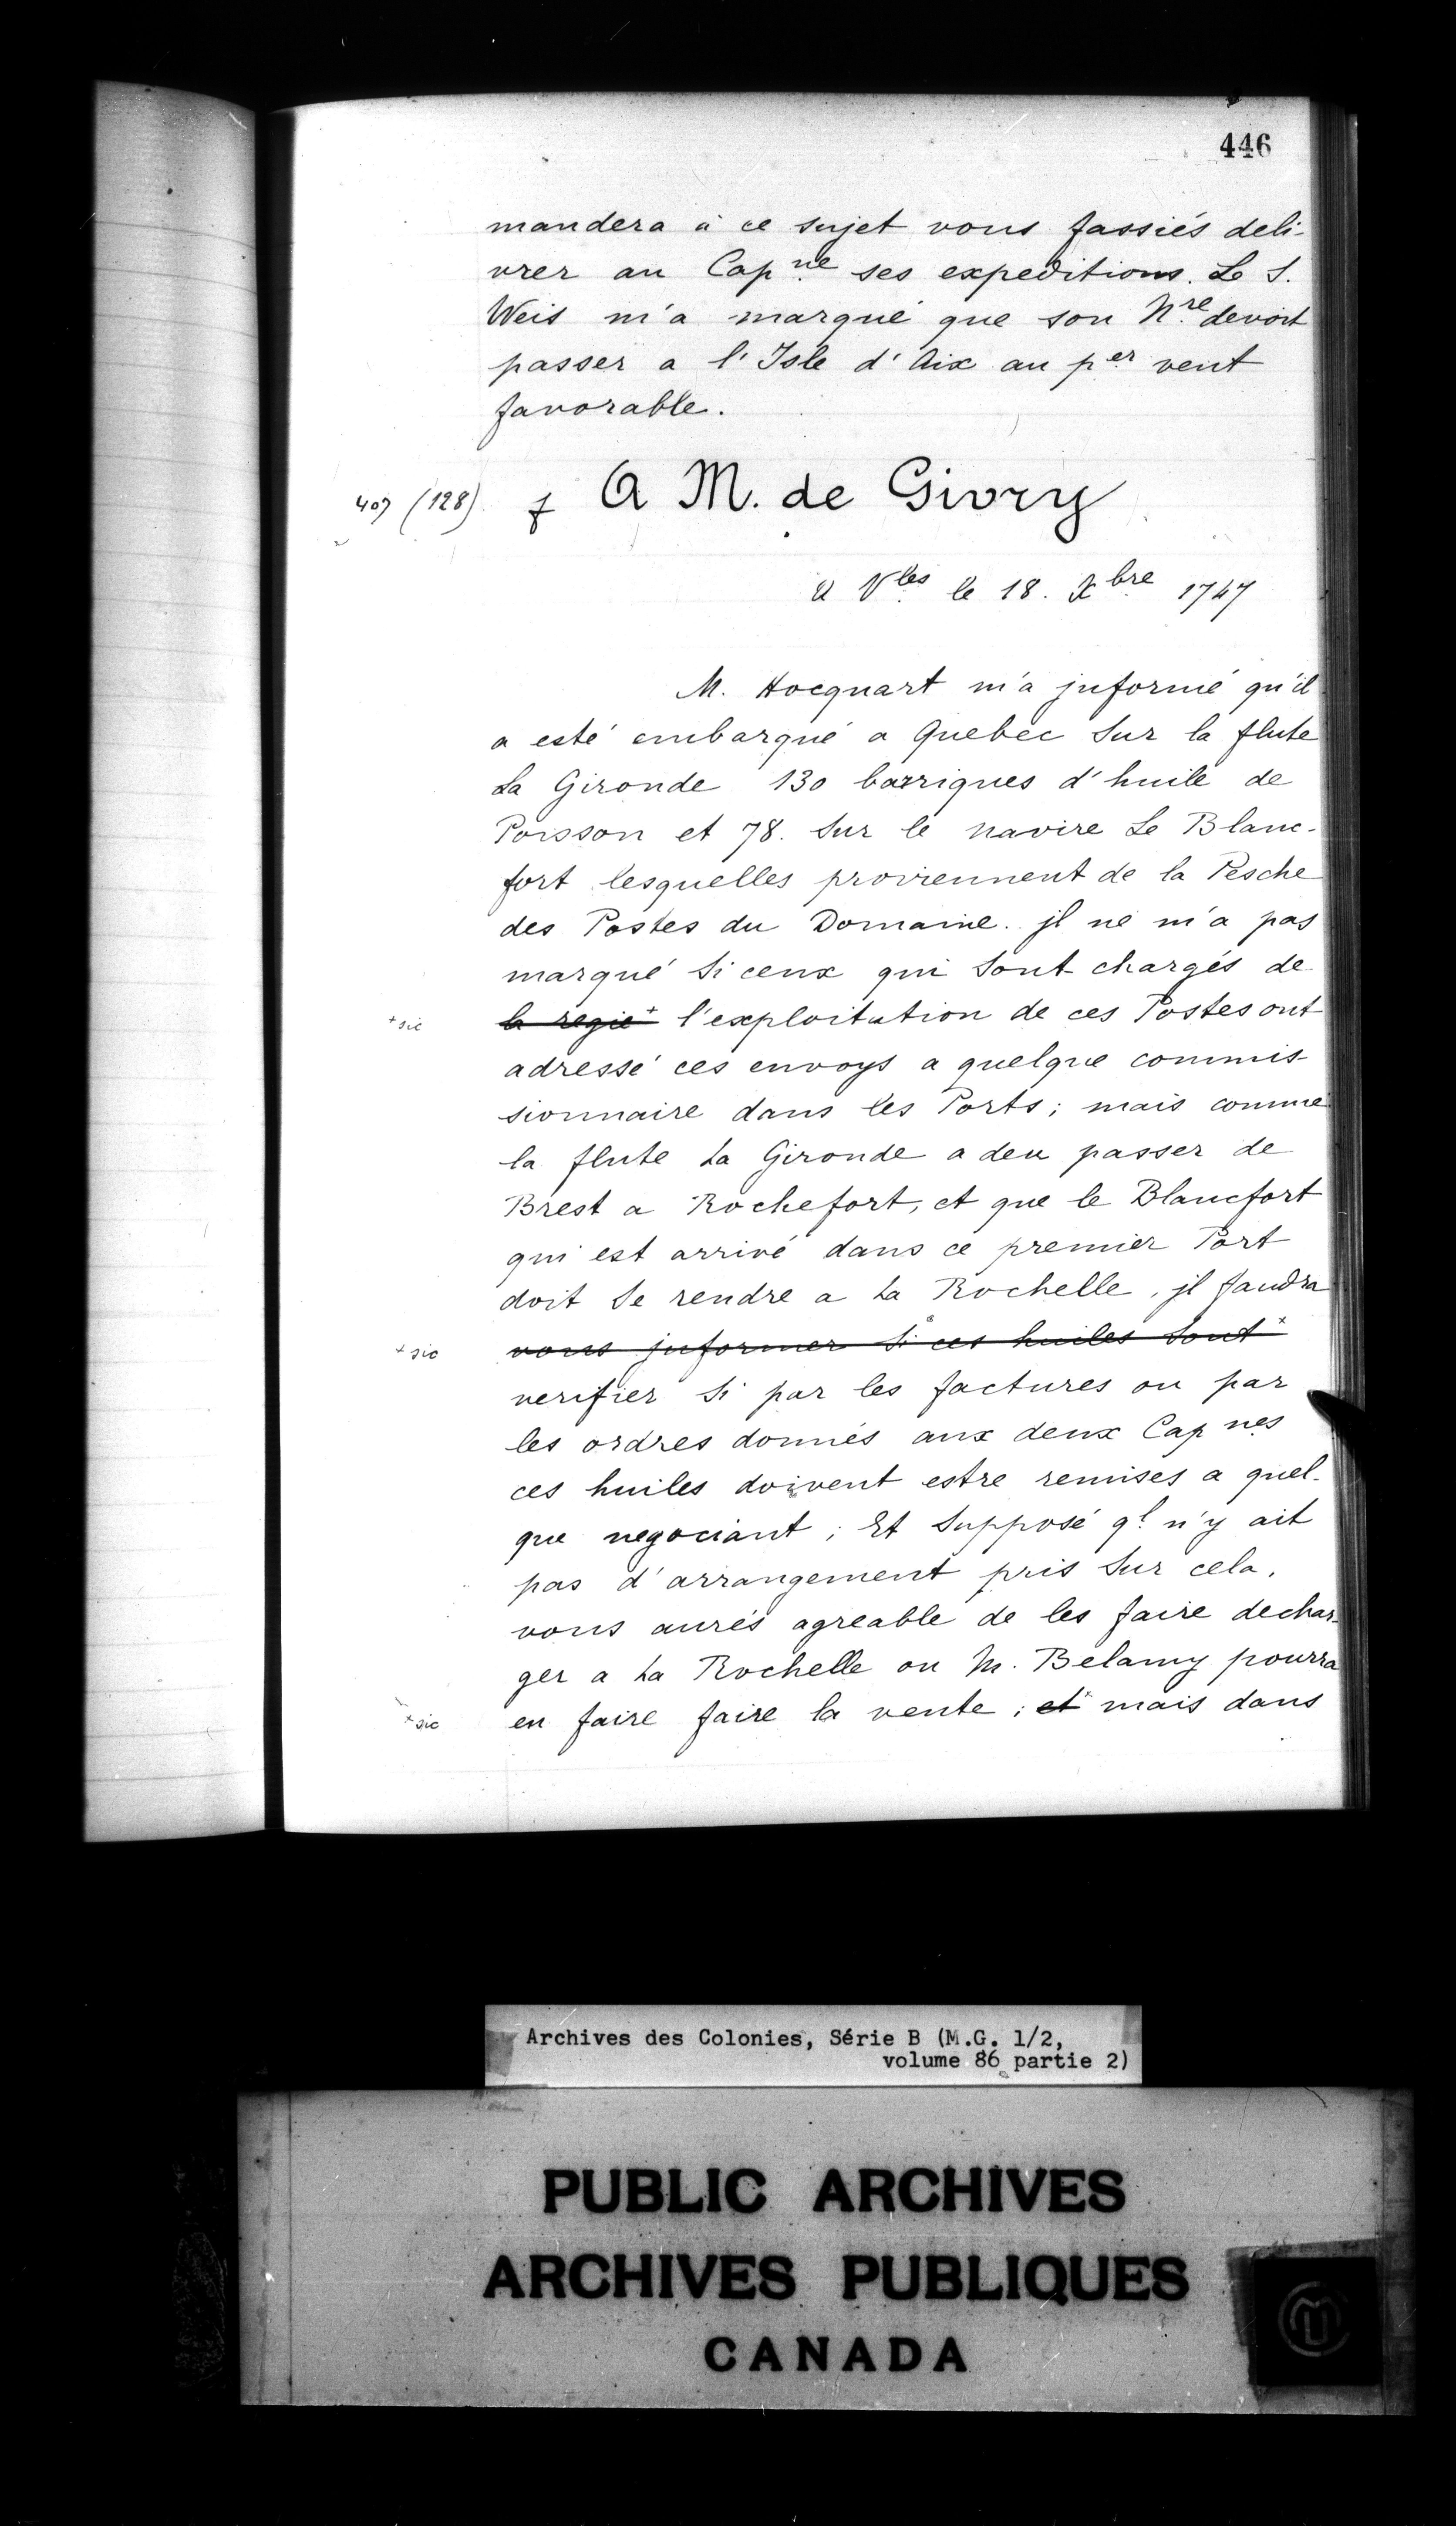 446
mandera à ce sujet vous fassiés deli-
vrer au Cap.ne ses expeditions. Le S.
Weis m'a marqué que son N.re devoit
passer a l'Isle d'Aix au per vent
favorable.
407 (128) f A M. de Givry
a V.les le 18. Xbre 1747
M. Hocquart m'a jnformé qu'il
a esté embarqué a Quebec Sur la flute
La Gironde 130 barriques d'huile de
Poisson et 78. Sur le navire Le Blanc-
fort lesquelles proviennent de la Pesche
des Postes du Domaine. jl ne m'a pas
marqué Si ceux qui Sont chargés de
+ sic la regie + l'exploitation de ces Postes ont
adressé ces envoys a quelque commis-
sionnaire dans les Ports; mais comme
la flute La Gironde a deu passer de
Brest a Rochefort, et que le Blancfort
qui est arrivé dans ce premier Port
doit Se rendre a La Rochelle, jl faudra
+ sic vous jnformer Si ces huiles Sont +
verifier Si par les factures ou par
les ordres donnés aux deux Cap.nes
ces huiles doivent estre remises a quel-
que negociant; Et Supposé q.l n'y ait
pas d'arrangement pris Sur cela,
vous aurés agreable de les faire dechar-
ger a La Rochelle ou M. Belamy pourra
+ sic en faire faire la vente; et + mais dans
Archives des Colonies, Série B (M.G. 1/2,
volume 86 partie 2)
PUBLIC ARCHIVES
ARCHIVES PUBLIQUES
CANADA